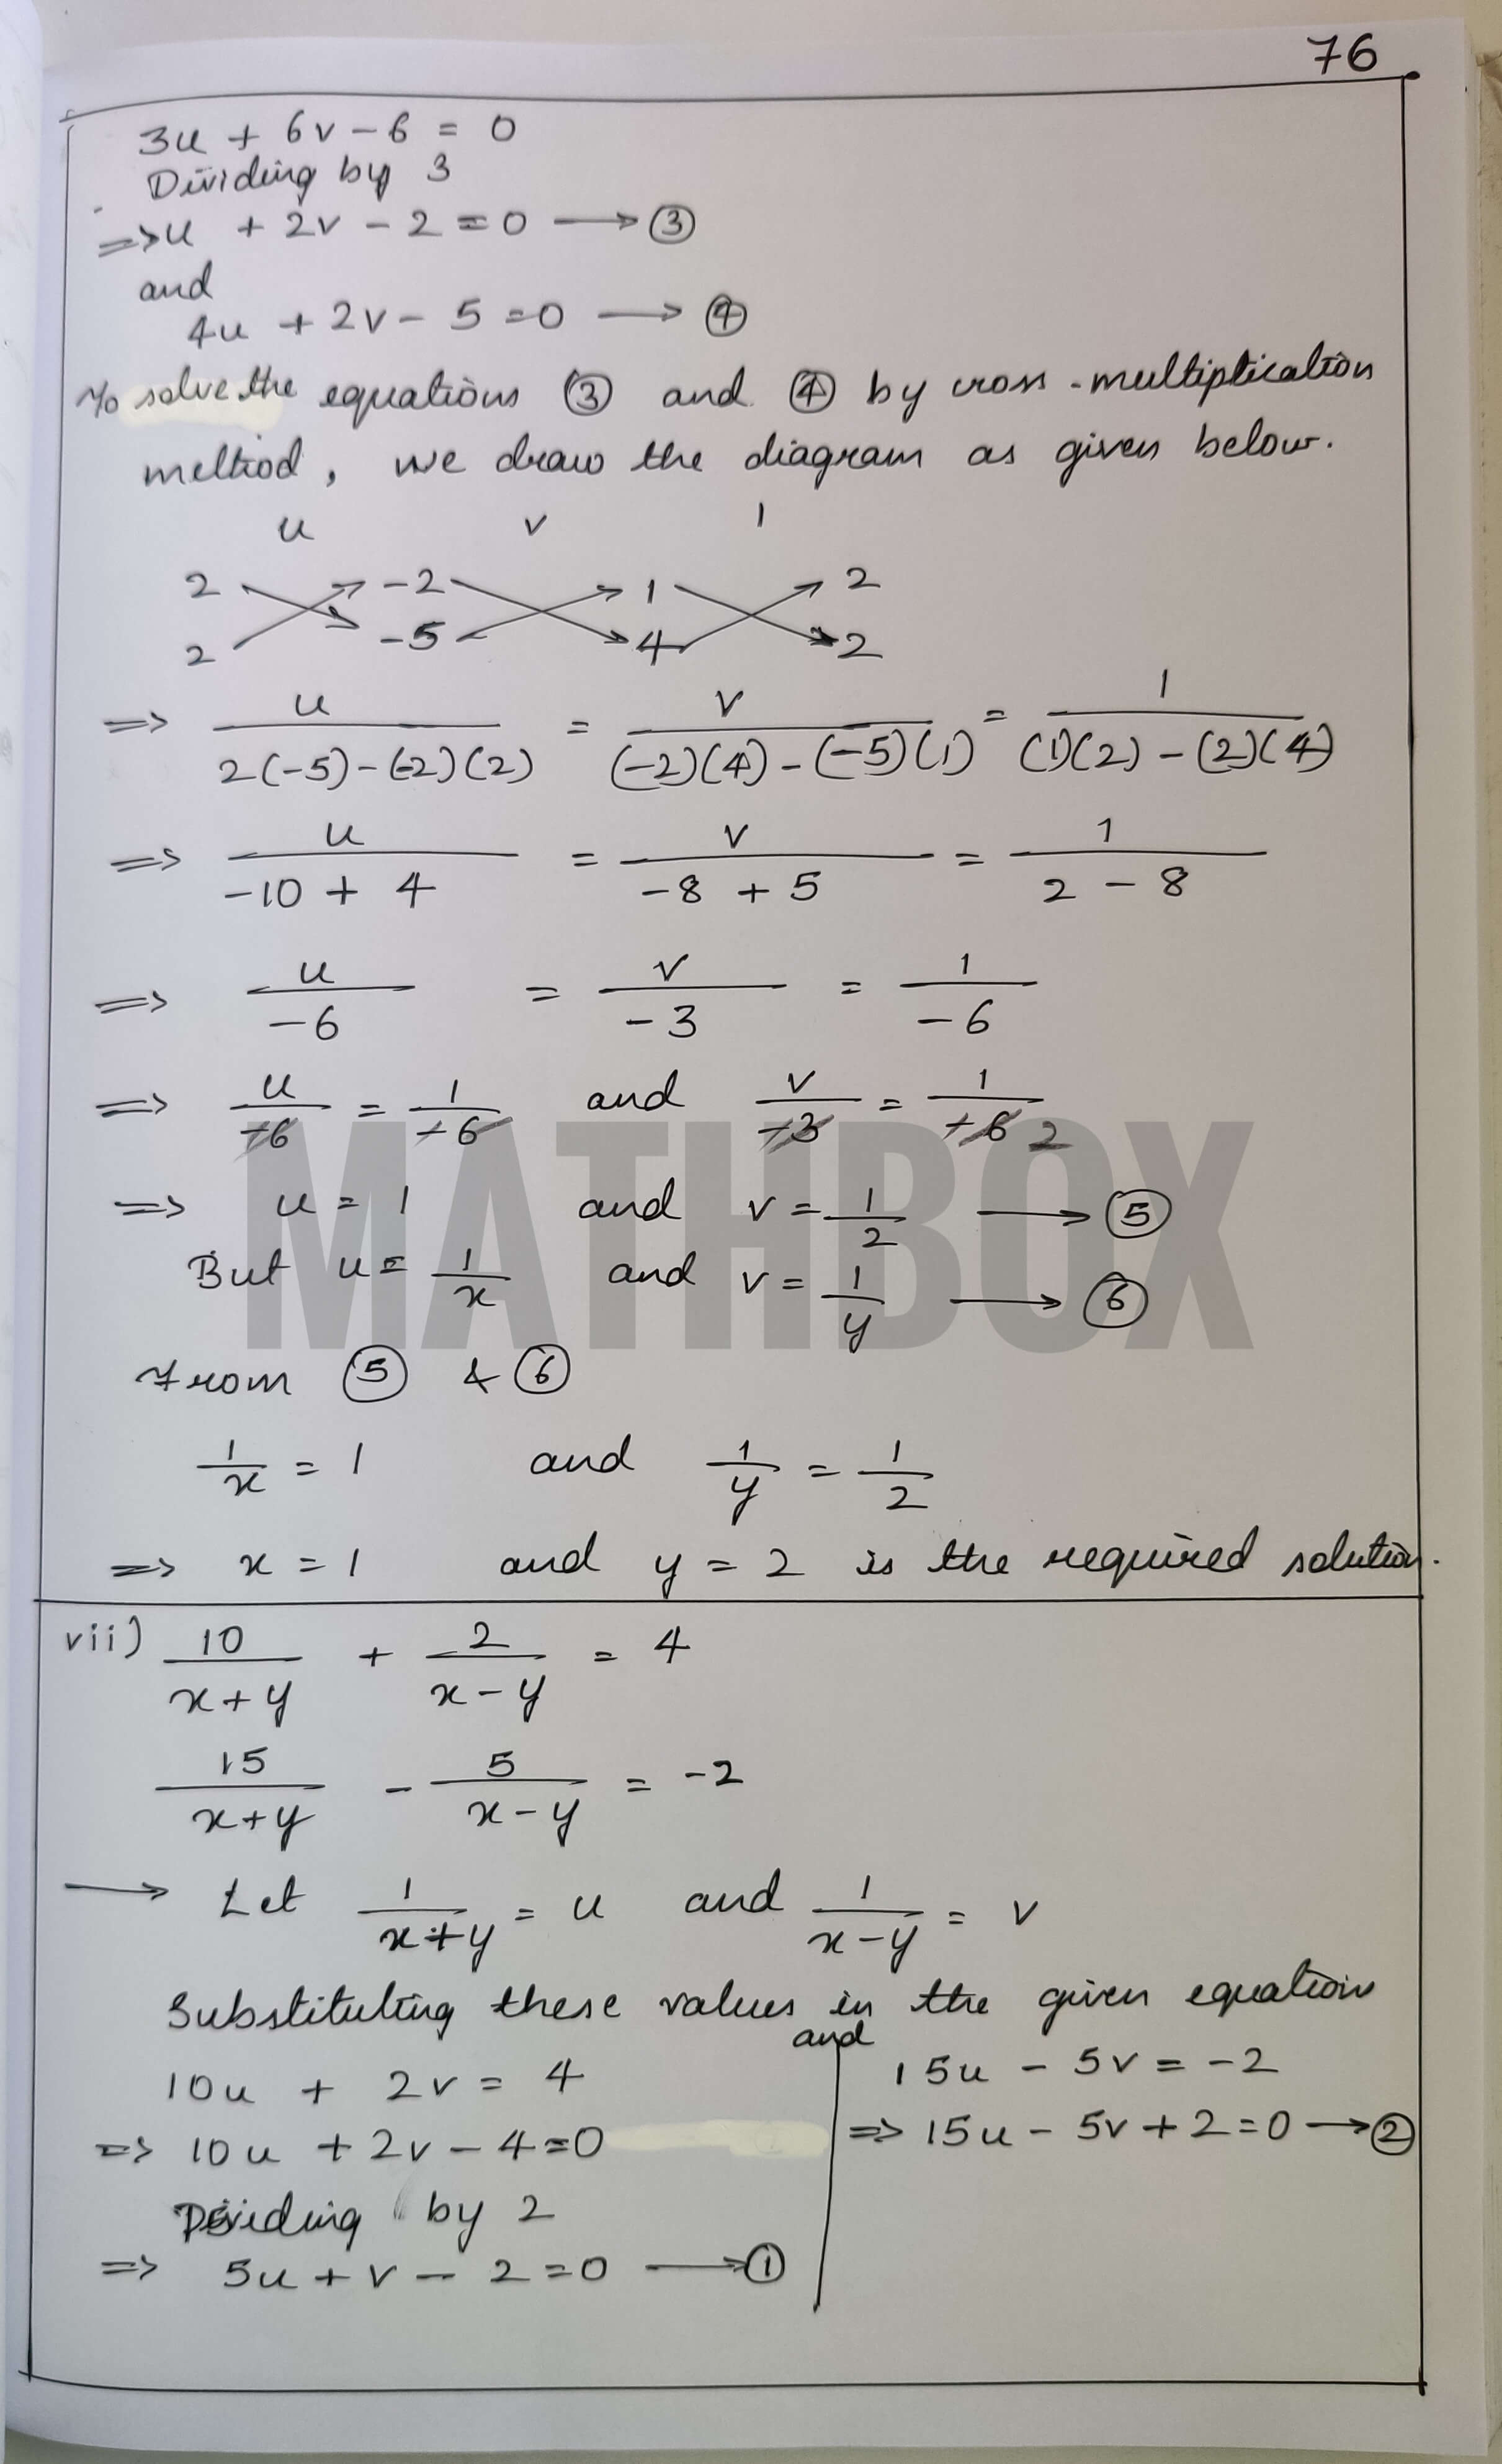 76
3u + 6v - 6 = 0
Dividing by 3
=> u + 2v - 2 = 0 → ③
and
4u + 2v - 5 = 0 → ④
To solve the equations ③ and ④ by cross-multiplication
method, we draw the diagram as given below.
u v 1
2 -2 1 2
2 -5 4 2
=> u/(2(-5)-(-2)(2)) = v/((-2)(4)-(-5)(1)) = 1/((1)(2)-(2)(4))
=> u/(-10 + 4) = v/(-8 + 5) = 1/(2 - 8)
=> u/-6 = v/-3 = 1/-6
=> u/-6 = 1/-6 and v/-3 = 1/-6 2
=> u = 1 and v = 1/2 → ⑤
But u = 1/x and v = 1/y → ⑥
From ⑤ & ⑥
1/x = 1 and 1/y = 1/2
=> x = 1 and y = 2 is the required solution.
vii) 10/(x+y) + 2/(x-y) = 4
15/(x+y) - 5/(x-y) = -2
→ Let 1/(x+y) = u and 1/(x-y) = v
Substituting these values in the given equation
10u + 2v = 4 and 15u - 5v = -2
=> 10u + 2v - 4 = 0 => 15u - 5v + 2 = 0 → ②
Dividing by 2
=> 5u + v - 2 = 0 → ①
MATHBOX